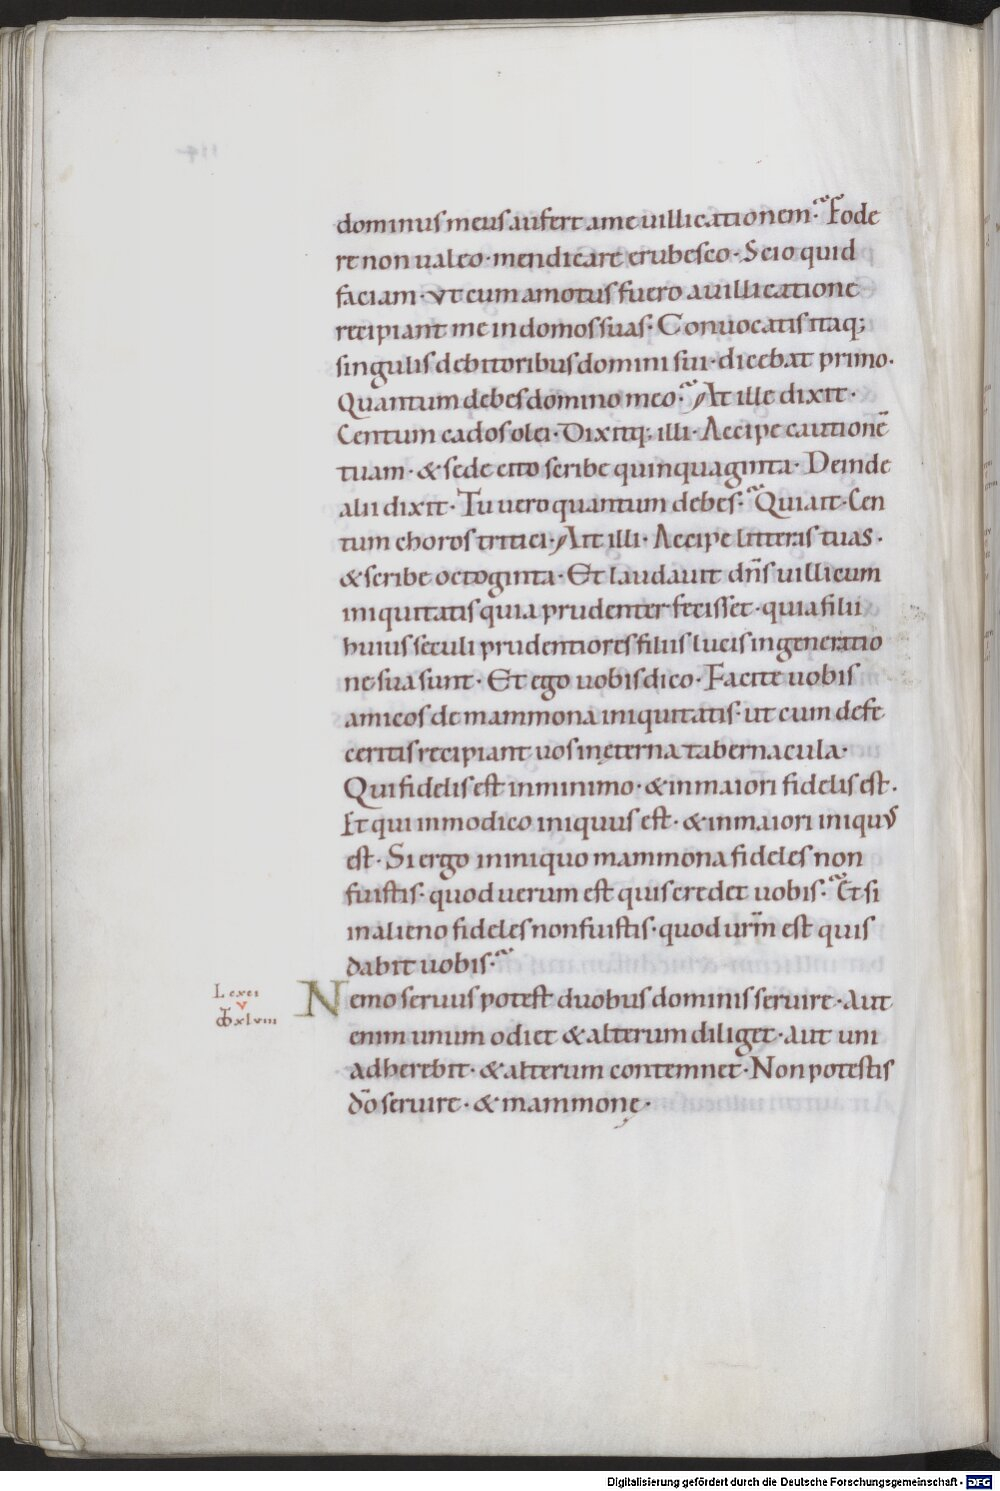 dominus meus aufert a me uillicationem· Fode
re non ualeo· mendicare erubesco· Scio quid
faciam· ut cum amotus fuero a uillicatione
recipiant me in domos suas· Conuocatis itaq;
singulis debitoribus domini sui· dicebat primo·
Quantum debes domino meo· At ille dixit·
Centum cados olei· Dixitq; illi· Accipe cautionē
tuam· & sede cito scribe quinquaginta· Deinde
alii dixit· Tu uero quantum debes· Qui ait· Cen
tum choros tritici· Ait illi· Accipe litteras tuas·
& scribe octoginta· Et laudauit dn̄s uillicum
iniquitatis quia prudenter fecisset· quia filii
huius seculi prudentiores filiis lucis in generatio
ne sua sunt· Et ego uobis dico· Facite uobis
amicos de mammona iniquitatis· ut cum defe
ceritis recipiant uos in ęterna tabernacula·
Qui fidelis est in minimo· & in maiori fidelis est·
Et qui in modico iniquus est· & in maiori iniquus
est· Si ergo in iniquo mammona fideles non
fuistis· quod uerum est quis credet uobis· Et si
in alieno fideles non fuistis· quod ur̄m est quis
dabit uobis·
L cxci
v
xlviii
Nemo seruus potest duobus dominis seruire· Aut
enim unum odiet & alterum diliget· aut uni
adherebit· & alterum contemnet· Non potestis
dō seruire· & mammonę·
Digitalisierung gefördert durch die Deutsche Forschungsgemeinschaft - DFG